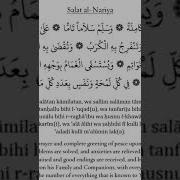 Salat al-Nariya
كَامِلَةً وَسَلِّمْ سَلَامًا تَامًّا عَلَىٰ
تَنْفَرِجُ بِهِ الْكُرَبُ وَتُقْضَىٰ بِهِ
وَيُسْتَسْقَى الْغَمَامُ بِوَجْهِهِ
فِي كُلِّ لَمْحَةٍ وَنَفَسٍ بِعَدَدِ
salātan kāmilatan, wa sallim salāman tām
anḥallu bihi l-ʿuqad(u), wa tanfariju bihi
bihi r-raghāʾibu wa ḥusnu l-khawā
m(i), wa ʿalā ālihi wa ṣaḥbihi fī kulli l
ʿadadi kulli maʿlūmin lak(a)
prayer and complete greeting of peace upon
problems are solved, and anxieties are relieved
ained and good endings are received, and
on his Family and Companion, with every
the number of everything that is known to